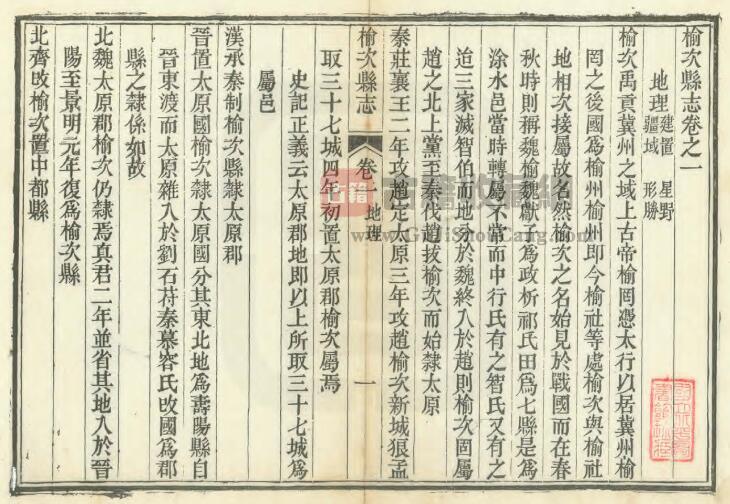 榆次縣志卷之一
地理 建置 星野
疆域 形勝
榆次禹貢冀州之域上古帝榆罔憑太行以居冀州榆
罔之後國為榆州榆州即今榆社等處榆次與榆社
地相次接屬故名然榆次之名始見於戰國而在春
秋時則稱魏榆魏獻子為政析祁氏田為七縣是為
涂水邑當時轉屬不常而中行氏有之智氏又有之
迨三家滅智伯而地分於魏終入於趙則榆次固屬
趙之北上黨至秦伐趙拔榆次而始隸太原
秦莊襄王二年攻趙定太原三年攻趙榆次新城狼孟
榆次縣志
卷一 地理
一
取三十七城四年初置太原郡榆次屬焉
史記正義云太原郡地即以上所取三十七城為
屬邑
漢承秦制榆次縣隸太原郡
晉置太原國榆次隸太原國分其東北地為壽陽縣自
晉東渡而太原雜入於劉石苻秦慕容氏攺國為郡
縣之隸係如故
北魏太原郡榆次仍隸焉真君二年並省其地入於晉
陽至景明元年復為榆次縣
北齊攺榆次置中都縣
古籍
古籍收藏網
www.GuJiShouCang.com